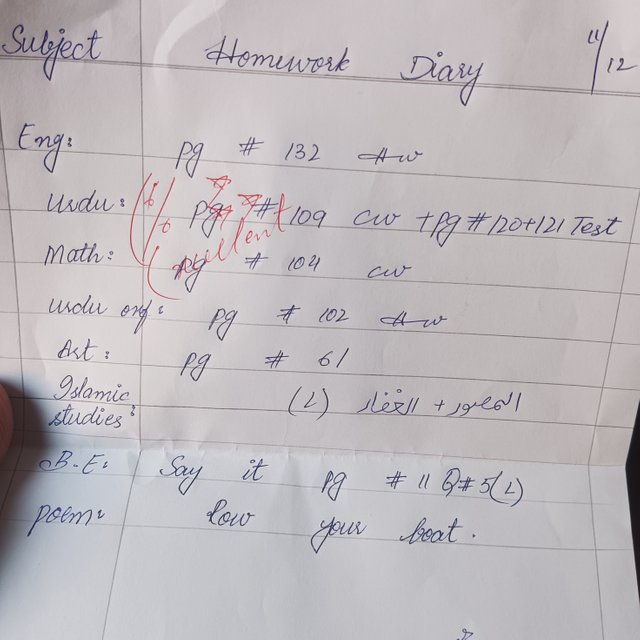 Subject Homework Diary 11/12
Eng: pg # 132 Hw
Urdu: pg # 109 cw + pg # 120+121 Test
6/6 Excellent
Math: pg # 104 cw
Urdu orf: pg # 102 Hw
Art: pg # 61
Islamic studies: (L) المصور + الغفار
B.E: Say it pg # 11 Q#5(L)
poem: Row your boat.